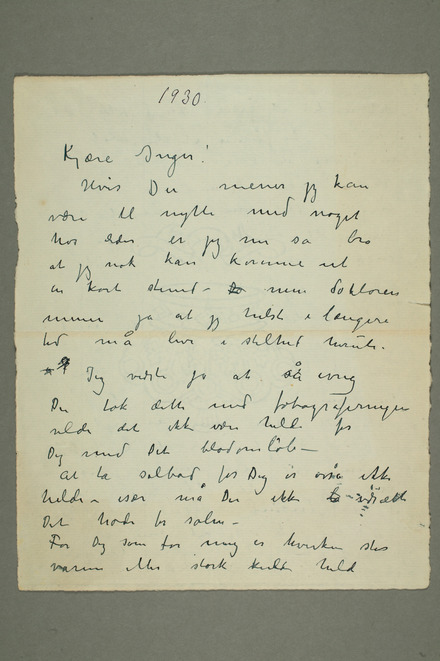 1930
Kjære Inger!
Hvis Du mener jeg kan
være til nytte med noget
hos eder er jeg nu så bra
at jeg nok kan komme ut
en kort stund – men doktoren
mener ja at jeg helst i længere
tid må leve i stilhed
Jeg vidste jo at så ivrig
Du tok dette med fotograferingen
vilde det ikke være heldi for
Dig med Dit blodomløb –
At ta solbad for Dig er også ikke
heldi – især må Du ikke utsætte
Dit hode for solen –
For Dig som for mig er hverken sterk
varme eller stærk kulde held